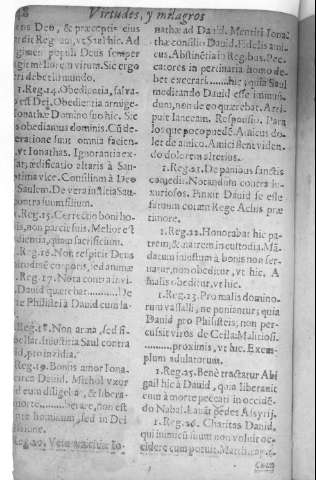 Virtudes, y milagros
Deo, & præceptis eius
Reg. 20, vt Saul hic. Ad
populi Deus semper
meliorem virum. Sic ergo
debet mundo.
1. Reg. 14. Obedientia, salva
est Dei. Obedientia armige-
Ionathæ Domino suo hic. Sic
obedianus dominis. Cū de-
sunt omnia facien-
vt Ionathas. Ignorantia ex-
ædificatio altaris à Saul
vice. Consilium à Deo
Saulem. De vera iustitia Sau-
contra suum filium.
Reg. 15. Correctio boni ho-
non parcis suis. Melior est
quàm sacrificium.
Reg. 16. Non respicit Deus
corporis, sed animæ
Reg. 17. Nota contra invi-
David quærebat ........... De
Philistæi à David cum la-
Reg. 18. Non arma, sed
iniustitia Saul contra
pro invidia.
Reg. 19. Bonus amor Iona-
circa David. Michol vxor
eum diligebat, & libera-
morte ......... non est
hominum, sed in Dei
Reg. 20. Vera amicitia Io-
nathæ ad David. Mentiri Ionat-
thæ consilio David. Fidelis ami-
cus. Abstinētia in Reg. bus. Pec-
catores in pertinatia homo de-
bet execrari ...... hic, quia Saul
meditando David esse immun-
dum, non ideo quærebat. Arri-
puit lanceam. Responsio. Para
los que poco puedē. Amicus do-
let de amico. Amici flent viden-
do dolorem alterius.
1. Reg. 21. De panibus sanctis
comedis. Notandum contra lu-
xuriosos. Finxit David se esse
fatuum coram Rege Achis præ
timore.
1. Reg. 22. Honorabat hic pa-
trem, & matrem in custodia. Mā-
datum iniustum à bonis non ser-
vatur, non obeditur, vt hic. A
malis obeditur, vt hic.
1. Reg. 23. Pro malis domino-
rum vassalli, ne ponantur; quia
David pro Philisteis; non per-
cussit viros de Ceila. Malitiosi.
........... proximis, vt hic. Exem-
plum adulatorum.
1. Reg. 25. Benè tractatur Abi-
gail hic à David, quia liberavit
eum à morte peccati in occidē-
do Nabal. Lavat pedes
1. Reg. 26. Charitas David,
qui inimicū suum non voluit oc-
cidere cum potuit. Matth. cap. 6.